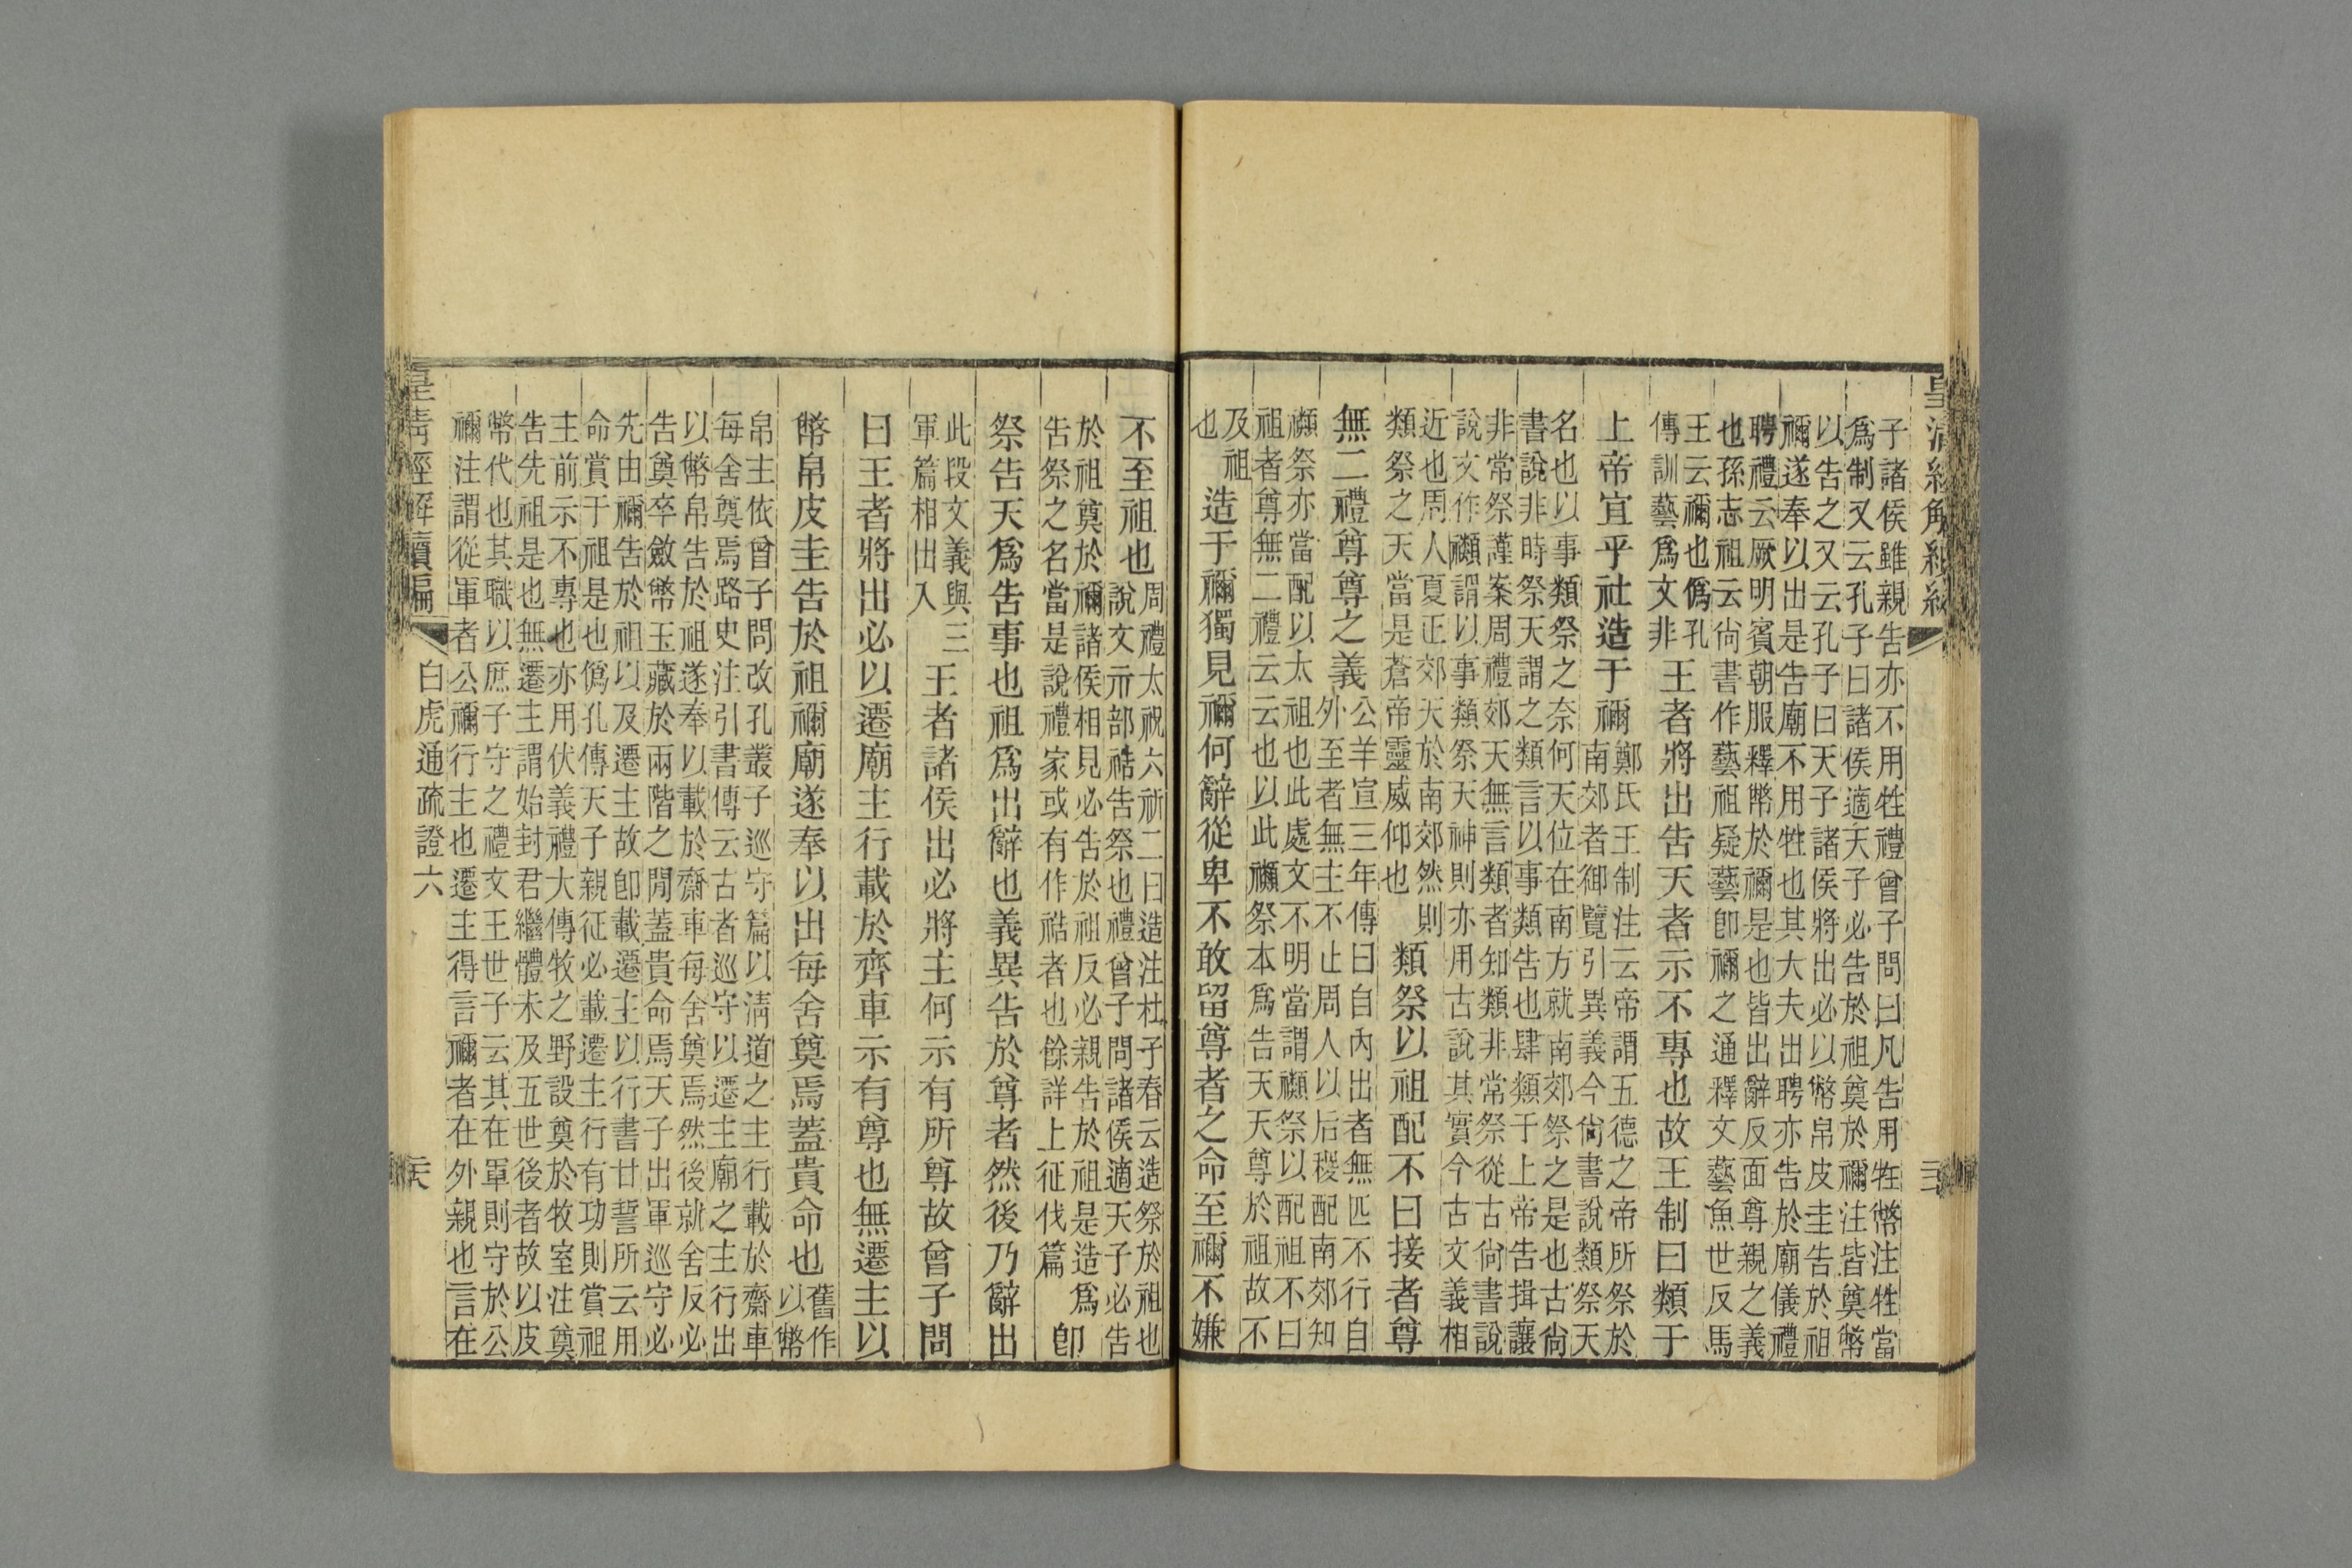 皇清經解續編
子諸侯雖親告亦不用牲禮曾子問曰凡告用牲幣注牲當
爲制又云孔子曰諸侯適天子必告於祖奠於禰注皆奠幣
以告之又云孔子曰天子諸侯將出必以幣帛皮圭告於祖
禰遂奉以出是告廟不用牲也其大夫出聘亦告於廟儀禮
聘禮云厥明賓朝服釋幣於禰是也皆出辭反面尊親之義
也孫志祖云尙書作藝祖疑藝卽禰之通釋文藝魚世反馬
王云禰也僞孔
傳訓藝爲文非
王者將出告天者示不專也故王制曰類于
上帝宜乎社造于禰
鄭氏王制注云帝謂五德之帝所祭於
南郊者御覽引異義今尙書說類祭天
名也以事類祭之奈何天位在南方就南郊祭之是也古尙
書說非時祭天謂之類言以事類告也肆類于上帝告揖讓
非常祭謹案周禮郊天無言類者知類非常祭從古尙書說
說文作禷謂以事類祭天神則亦用古說其實今古文義相
近也周人夏正郊天於南郊然則
類祭之天當是蒼帝靈威仰也
類祭以祖配不曰接者尊
無二禮尊尊之義
公羊宣三年傳曰自內出者無匹不行自
外至者無主不止周人以后稷配南郊知
禷祭亦當配以太祖也此處文不明當謂禷祭以配祖不曰
祖者尊無二禮云云也以此禷祭本爲告天天尊於祖故不
及祖
也
造于禰獨見禰何辭從卑不敢留尊者之命至禰不嫌
不至祖也
周禮太祝六祈二曰造注杜子春云造祭於祖也
說文示部祰告祭也禮曾子問諸侯適天子必告
於祖奠於禰諸侯相見必告於祖反必親告於祖是造爲
告祭之名當是說禮家或有作祰者也餘詳上征伐篇
卽
祭告天爲告事也祖爲出辭也義異告於尊者然後乃辭出
此段文義與三
軍篇相出入
王者諸侯出必將主何示有所尊故曾子問
曰王者將出必以遷廟主行載於齊車示有尊也無遷主以
幣帛皮圭告於祖禰廟遂奉以出每舍奠焉蓋貴命也
舊作
以幣
帛主依曾子問改孔叢子巡守篇以淸道之主行載於齋車
每舍奠焉路史注引書傳云古者巡守以遷主廟之主行出
以幣帛告於祖遂奉以載於齋車每舍奠焉然後就舍反必
告奠卒斂幣玉藏於兩階之閒蓋貴命焉天子出軍巡守必
先由禰告於祖以及遷主故卽載遷主以行書甘誓所云用
命賞于祖是也僞孔傳天子親征必載遷主行有功則賞祖
主前示不專也亦用伏義禮大傳牧之野設奠於牧室注奠
告先祖是也無遷主謂始封君繼體未及五世後者故以皮
幣代也其職以庶子守之禮文王世子云其在軍則守於公
禰注謂從軍者公禰行主也遷主得言禰者在外親也言在
皇淸經解續編
白虎通疏證六